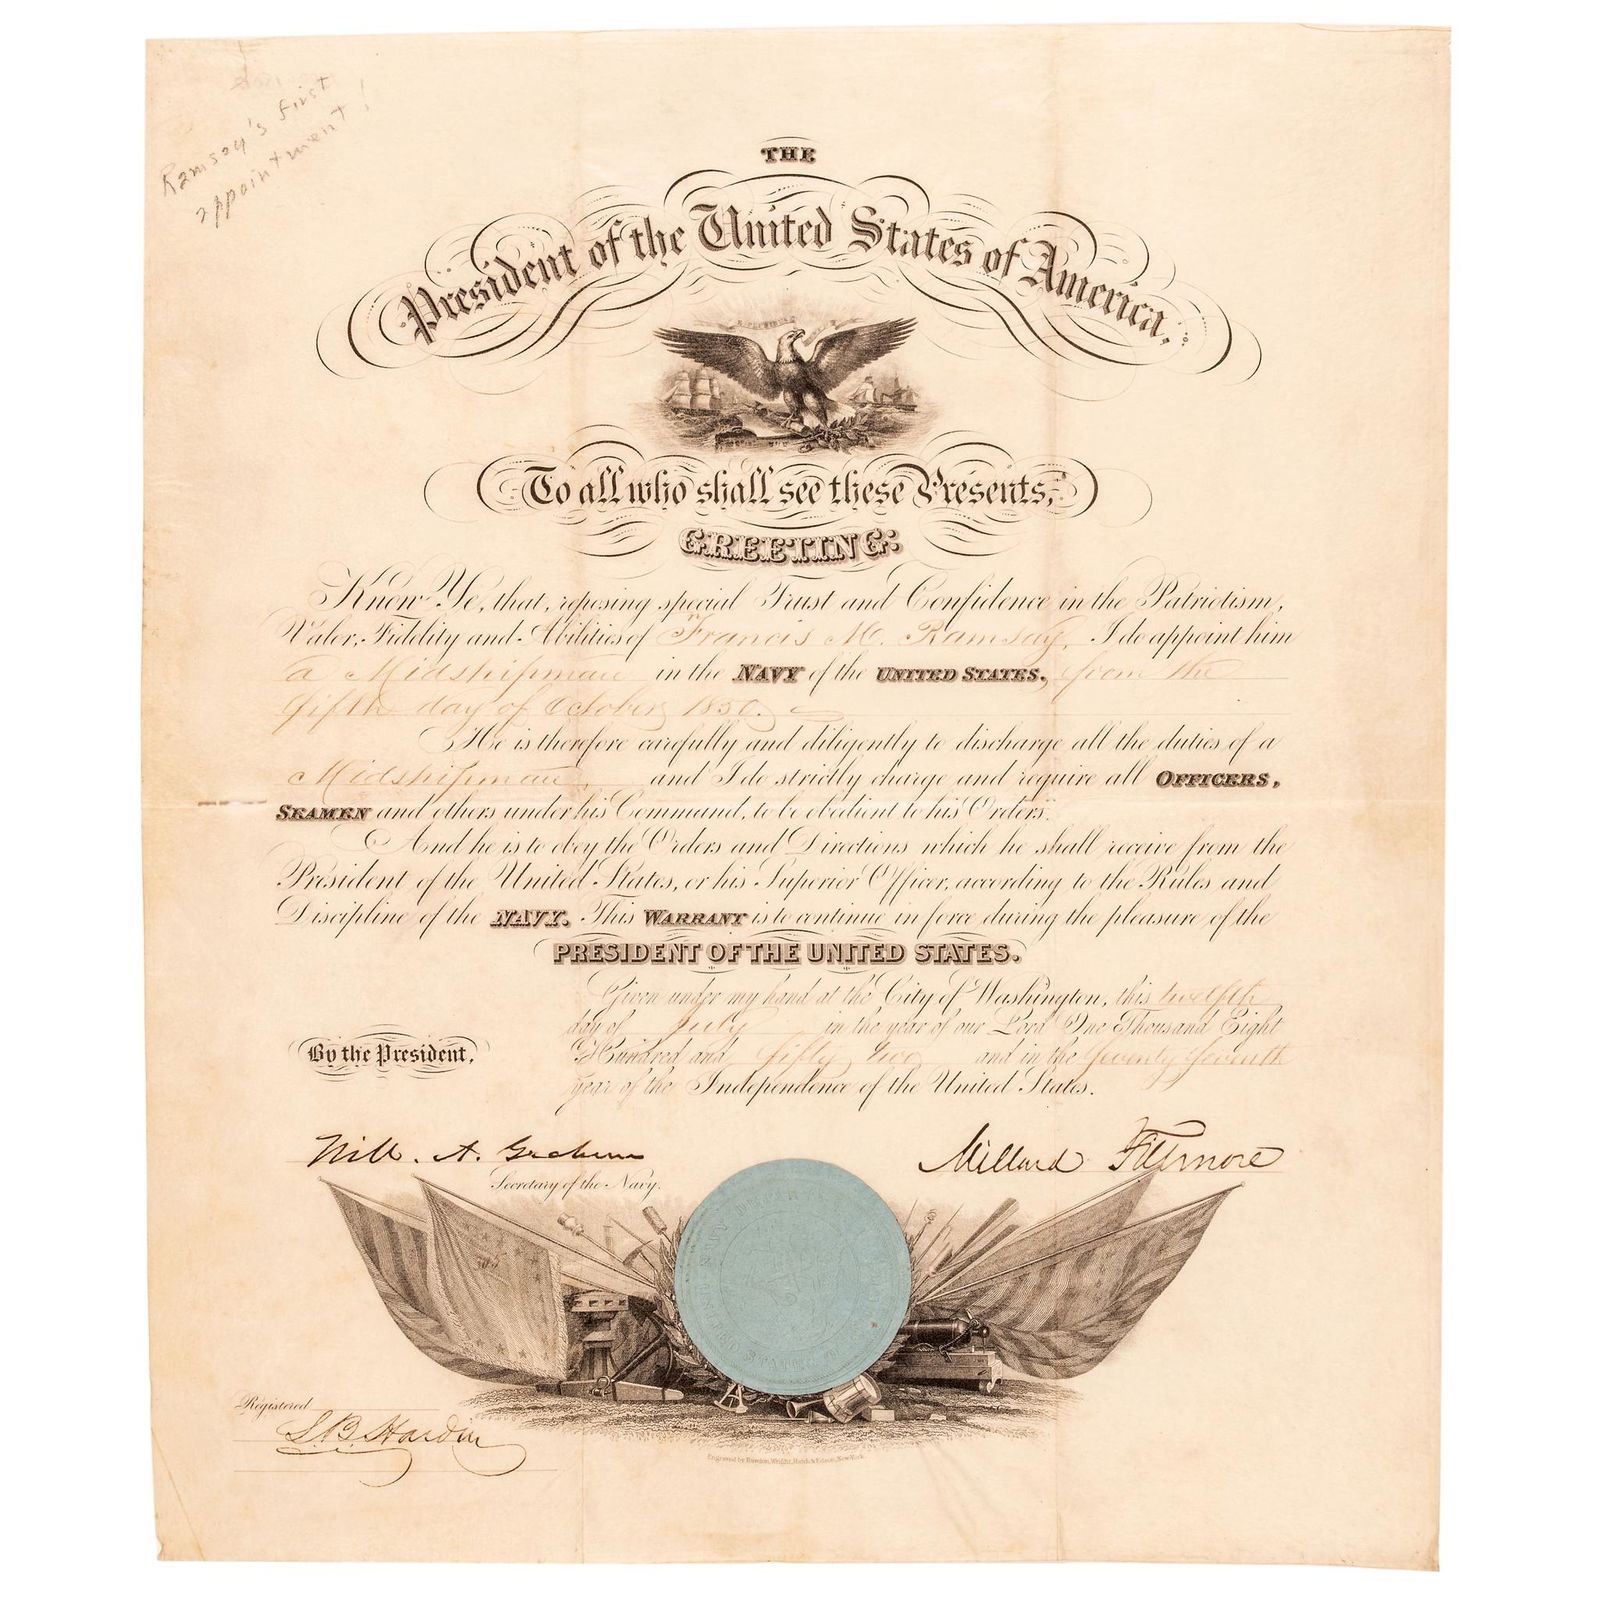 Ramsay's first
appointment!
THE
President of the United States of America.
To all who shall see these Presents,
GREETING:
Know Ye, that, reposing special Trust and Confidence in the Patriotism,
Valor, Fidelity and Abilities of Francis M. Ramsay, I do appoint him
a Midshipman in the NAVY of the UNITED STATES, from the
fifth day of October, 1850.
He is therefore carefully and diligently to discharge all the duties of a
Midshipman, and I do strictly charge and require all OFFICERS,
SEAMEN and others under his Command, to be obedient to his Orders.
And he is to obey the Orders and Directions which he shall receive from the
President of the United States, or his Superior Officer, according to the Rules and
Discipline of the NAVY. This WARRANT is to continue in force during the pleasure of the
PRESIDENT OF THE UNITED STATES.
Given under my hand at the City of Washington, this twelfth
day of July in the year of our Lord One Thousand Eight
Hundred and fifty two and in the Seventy Seventh
year of the Independence of the United States.
By the President,
Will. A. Graham Millard Fillmore
Secretary of the Navy.
NAVY DEPARTMENT
UNITED STATES OF
Registered
S.B. Hardin
Engraved by Rawdon, Wright, Hatch & Edson, New-York.